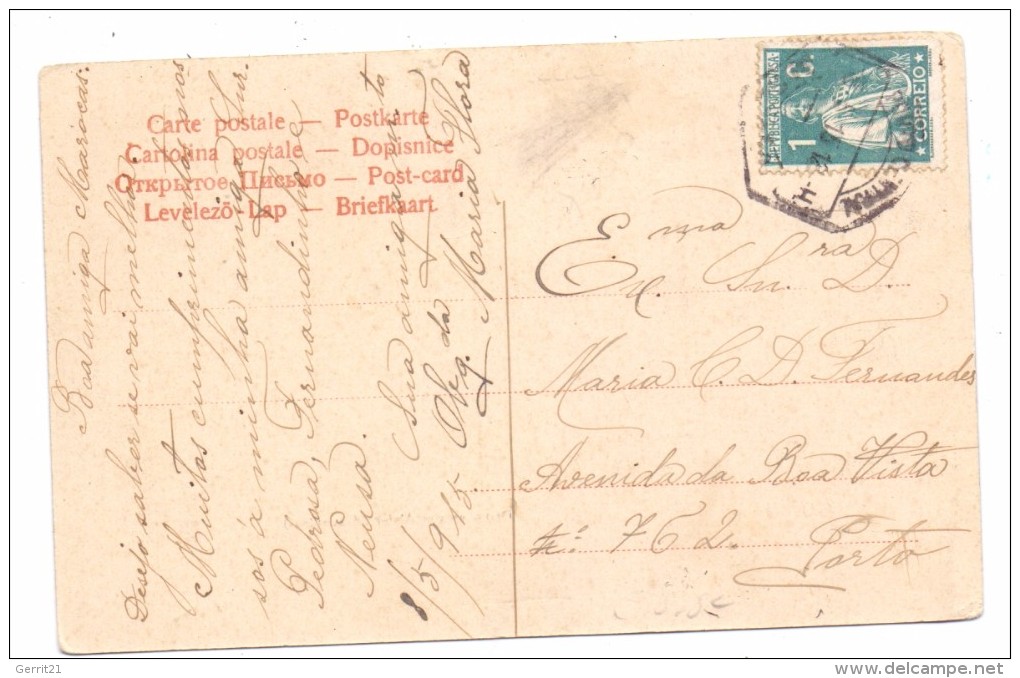 Carte postale — Postkarte
Cartolina postale — Dopisnice
Открытое Письмо — Post-card
Levelező-Lap — Briefkaart
Boa amiga Marocas:
Desejo saber se vai melhor.
Muitos cumprimentos nos
sos á minha amiga Snr.
Pedrosa, Fernandinho e
Neusa.
Sua amiga m.to
Obg.da
Maria Flora
8/5/915
REPUBLICA PORTUGUESA
1 C.
CORREIO
Ema
Ex. Snra D.
Maria C. D. Fernandes
Avenida da Boa Vista
762.
Porto
Gerrit21
delcampe.net